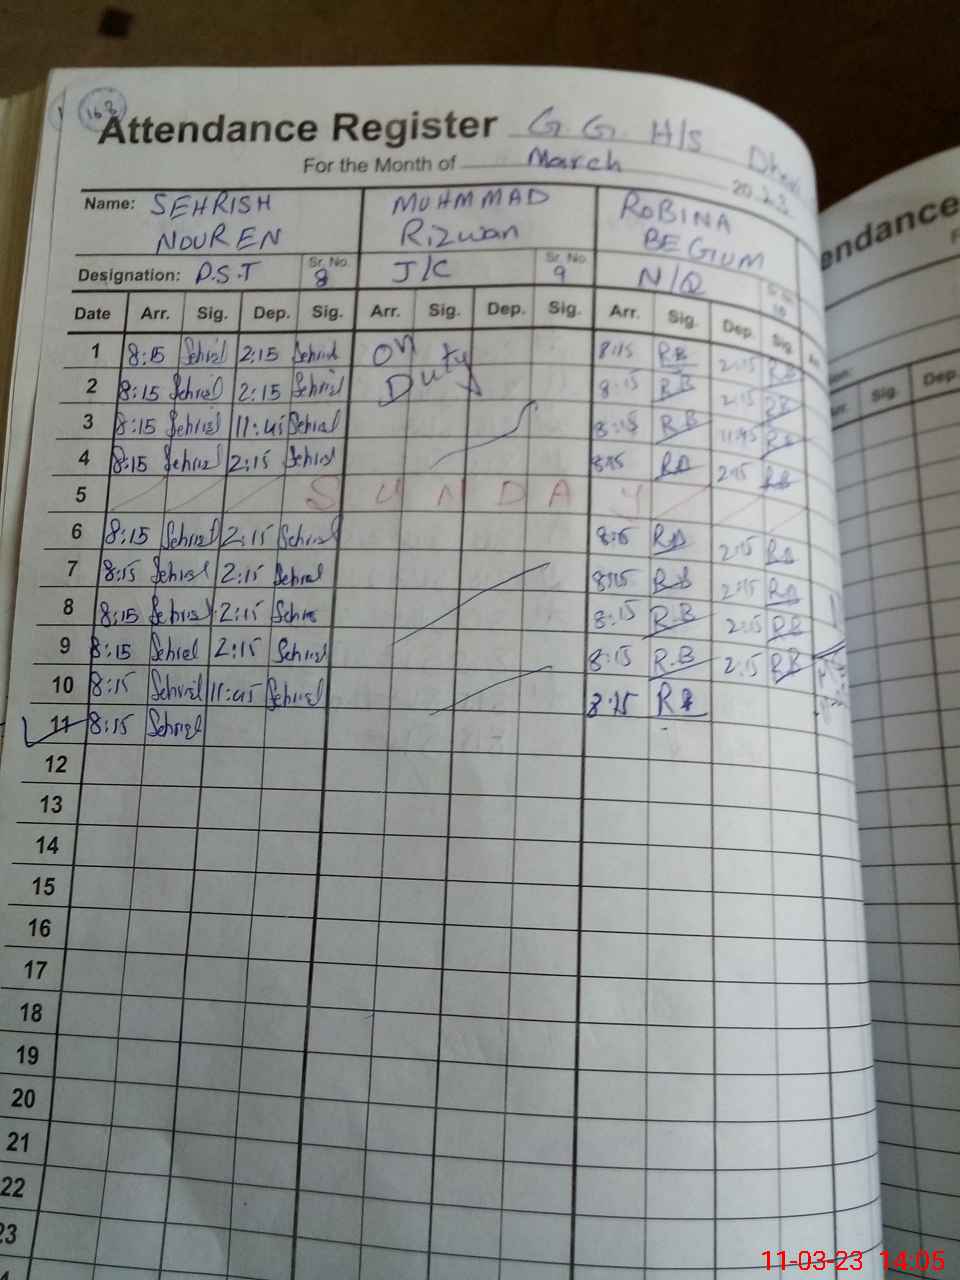 168
Attendance Register G.G. H/S
For the Month of March 2023
Name: SEHRISH NOUREN MUHMMAD Rizwan ROBINA BEGIUM
Designation: P.S.T Sr. No. 8 J/C Sr. No. 9 N/Q Sr. No. 10
Date Arr. Sig. Dep. Sig. Arr. Sig. Dep. Sig. Arr. Sig. Dep. Sig.
1 8:15 Sehrish 2:15 Sehrish On Duty 8:15 RB 2:15 RB
2 8:15 Sehrish 2:15 Sehrish 8:15 RB 2:15 RB
3 8:15 Sehrish 11:45 Sehrish 8:15 RB 11:45 RB
4 8:15 Sehrish 2:15 Sehrish 8:15 RB 2:15 RB
5 SUNDAY
6 8:15 Sehrish 2:15 Sehrish 8:15 RB 2:15 RB
7 8:15 Sehrish 2:15 Sehrish 8:15 RB 2:15 RB
8 8:15 Sehrish 2:15 Sehrish 8:15 R.B 2:15 RB
9 8:15 Sehrish 2:15 Sehrish 8:15 R.B 2:15 RB
10 8:15 Sehrish 11:45 Sehrish 8:15 RB
11 8:15 Sehrish
12
13
14
15
16
17
18
19
20
21
22
23
endance
Sig. Dep.
11-03-23 14:05